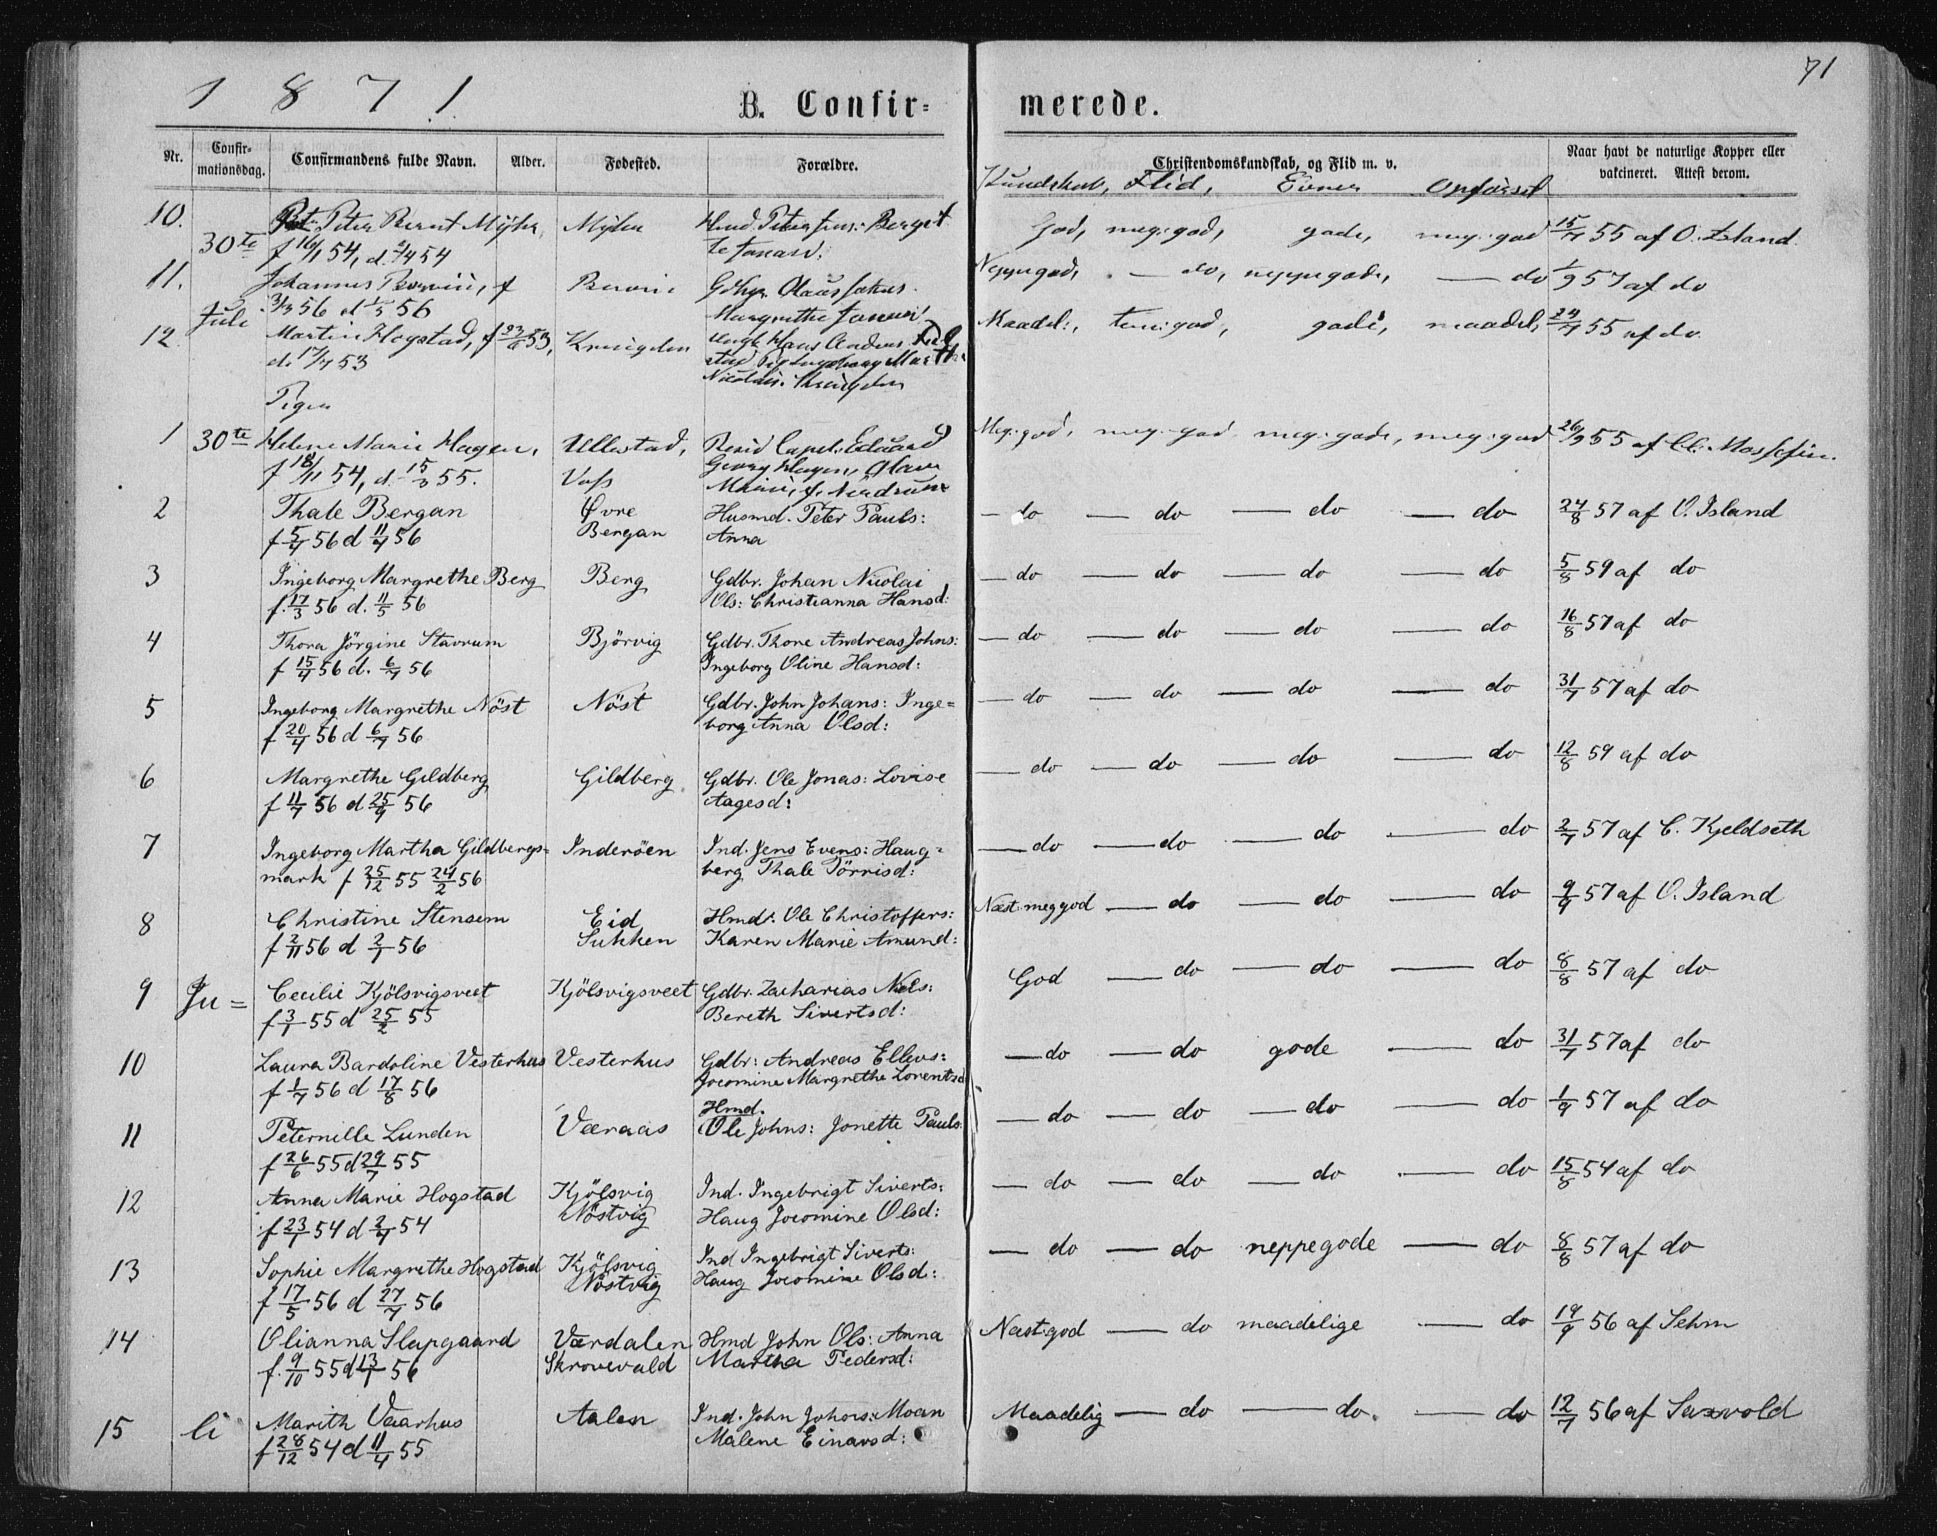 1871
B. Confirmerede.
71
Nr. Confirmationsdag. Confirmandens fulde Navn. Alder. Fodested. Forældre. Christendomskundskab, og Flid m. v. Naar havt de naturlige Kopper eller vakcineret. Attest derom.
Kundskab, Flid, Evner Opførsel
10. Peter Bernt Myhr, God, meg: god, gode, meg: god 15/7 55 af O. Island.
30te f 16/1 54, d. 2/4 54
11. Johannes f Neppe god, — do, neppe gode, — do 1/9 57 af do
3/3 56 d 1/5 56
Juli
12. Martin Hogstad, f 23/6 53, Maadel:, god, gode, maadel, 24/7 55 af do.
d. 17/7 53
Piger
1 30te Helene Marie Hagen, Ullestad, Resid. Capel. Eduard Meg: god, meg: god meg: gode, meg: god 26/9 55 af
f 18/11 54, d. 15/3 55. Voss Georg Hagen, Olave
2 Thale Bergan Øvre Husmd. Peter Pauls: — do — do — do — do 24/8 57 af O. Island
f 5/4 56 d 11/4 56 Bergan Anna
3 Ingeborg Margrethe Berg Berg Gdbr. Johan Nicolai — do — do — do — do 5/8 59 af do
f. 17/3 56 d. 11/5 56 Ols: Christianna Hansd:
4 Thora Jörgine Stavrum Björvig Gdbr. Thore Andreas Johns: — do — do — do — do 16/8 57 af do
f 15/4 56 d. 6/7 56 Ingeborg Oline Hansd:
5 Ingeborg Margrethe Nöst Nöst Gdbr. John Johans: Inge= — do — do — do — do 31/7 57 af do
f 20/4 56 d 6/7 56 borg Anna Olsd:
6 Margrethe Gildberg Gildberg Gdbr. Ole Jonas: Lovise — do — do — do — do 12/8 59 af do
f 11/7 56 d 25/9 56 Aagesd:
7 Ingeborg Martha Gildbergs= Inderöen Ind. Jens Evens: Haug= — do — do — do — do 2/7 57 af C. Kjeldseth
mark f 25/12 55 24/2 56 berg Thale Törrisd:
8 Christine Stensem Eid Hmd. Ole Christoffers: Næst meg god — do — do — do 9/9 57 af O. Island
f 2/11 56 d 2/1 56 Sukken Karen Marie Amund:
9 Ju= Cecilie Kjölsvigsveet Kjölsvigsveet Gdbr. Zacharias Niels: God — do — do — do 8/8 57 af do
f 3/1 55 d 25/2 55 Bereth Sivertsd:
10 Laura Bardoline Vesterhus Vesterhus Gdbr: Andreas Ellevs: — do — do gode — do 31/7 57 af do
f 1/7 56 d 17/8 56 Jocomine Margrethe Lorentsd
Hmd.
11 Peternille Lunden Væraas Ole Johns: Jonette Pauls: — do — do — do — do 1/9 57 af do
f 26/6 55 d 29/7 55
12 Anna Marie Hogstad Kjölsvig Ind. Ingebrigt Siverts: — do — do — do — do 15/8 54 af do
f 23/1 54 d 2/4 54 Nöstvig Haug Jocomine Olsd:
13 Sophie Margrethe Hogstad Kjölsvig Ind Ingebrigt Siverts: — do — do neppegode — do 8/8 57 af do
f 17/5 56 d 27/7 56 Nöstvig Haug Jocomine Olsd:
14 Olianna Slapgaard Værdalen Hmd John Ols: Anna Næst god — do maadelige — do 19/9 56 af Sehm
f. 9/10 55 d 13/1 56 Skrovevald Martha Pedersd:
15 li Marith Vaarhus Aalen Ind. John Johns: Moan Maadelig — do — do. — do 12/7 56 af Saxvold
f 28/12 54 d 11/4 55 Malene Einarsd: